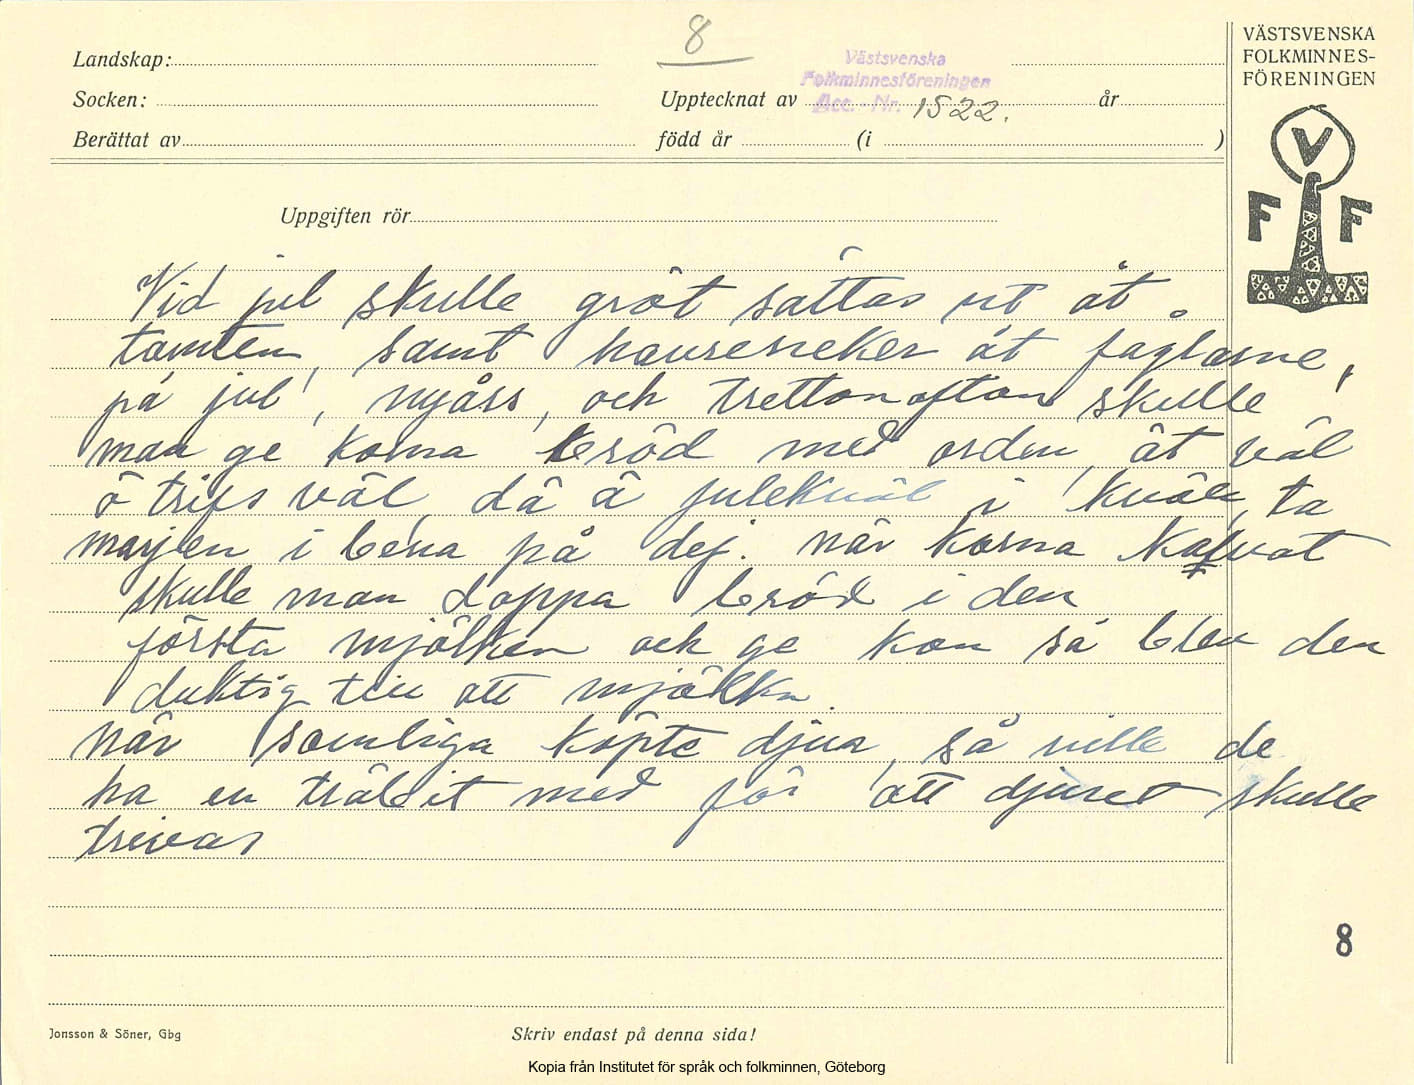 8
VÄSTSVENSKA
FOLKMINNES-
FÖRENINGEN
Landskap:
Västsvenska
Folkminnesföreningen
Socken: Upptecknat av Acc. - Nr. 1522. år
Berättat av född år (i )
V
F F
Uppgiften rör
Vid jul skulle gröt sättas ut åt
tomten, samt havreneker åt foglarne,
på jul, nyåss, och trettonafton skulle
man ge korna bröd med orden, ät väl
ö trifs väl, dä ä julekväl i kväll, ta
marjen i bena på dej. när korna kalvat
skulle man doppa bröd i den
första mjölken och ge kon så blev den
duktig till att mjölka.
når somliga köpte djur, så ville de
ha en träbit med för att djuret skulle
trivas
8
Jonsson & Söner, Gbg Skriv endast på denna sida!
Kopia från Institutet för språk och folkminnen, Göteborg